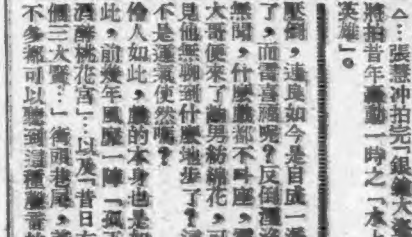 △…張慧冲拍完「銀鎗大盜
將拍昔年轟動一時之「水上
英雄」。
壓倒,連良如今是自成一派
了,而雷喜福呢?反倒湮
無聞,什麼戲都不叫座,
大哥便來了 男紡棉花,可
見他無聊到什麼地步了?
不是運氣使然嗎?
倫人如此,戲的本身也是如
此,前幾年風靡一陣「孤
酒醉桃花宮」…以及「昔日
個三大賢…」街頭巷尾,
不多都可以聽到這種聲音